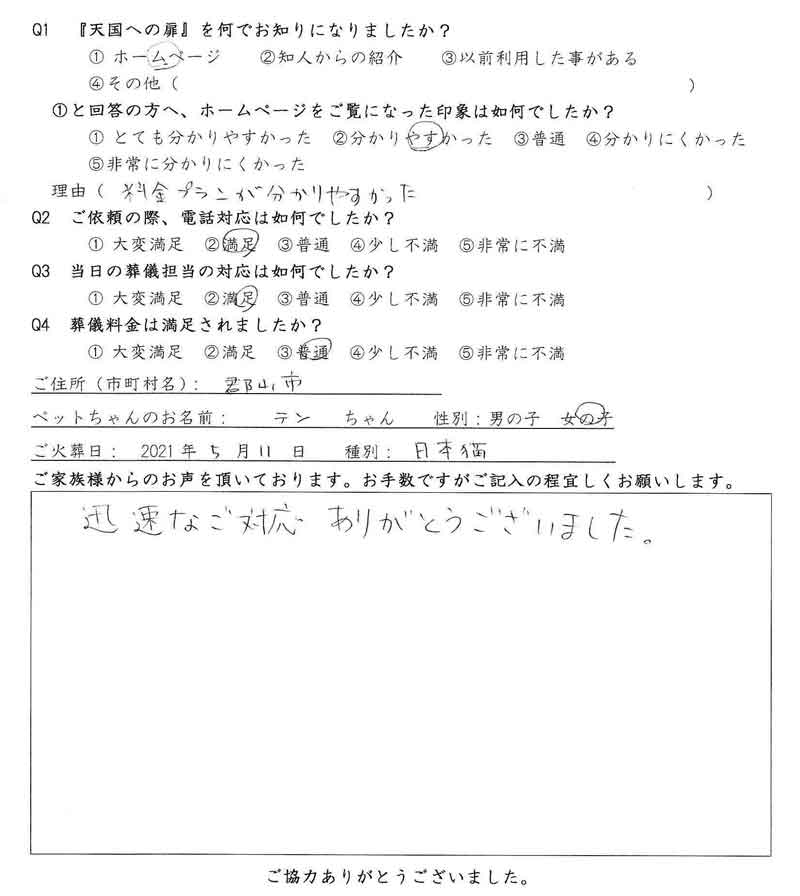 Q1 『天国への扉』を何でお知りになりましたか？
① ホームページ ②知人からの紹介 ③以前利用した事がある
④その他（ ）
①と回答の方へ、ホームページをご覧になった印象は如何でしたか？
① とても分かりやすかった ②分かりやすかった ③普通 ④分かりにくかった
⑤非常に分かりにくかった
理由（ 料金プランが分かりやすかった ）
Q2 ご依頼の際、電話対応は如何でしたか？
① 大変満足 ②満足 ③普通 ④少し不満 ⑤非常に不満
Q3 当日の葬儀担当の対応は如何でしたか？
① 大変満足 ②満足 ③普通 ④少し不満 ⑤非常に不満
Q4 葬儀料金は満足されましたか？
① 大変満足 ②満足 ③普通 ④少し不満 ⑤非常に不満
ご住所（市町村名）： 郡山市
ペットちゃんのお名前： テン ちゃん 性別：男の子 女の子
ご火葬日： 2021 年 5 月 11 日 種別： 日本猫
ご家族様からのお声を頂いております。お手数ですがご記入の程宜しくお願いします。
迅速なご対応 ありがとうございました。
ご協力ありがとうございました。